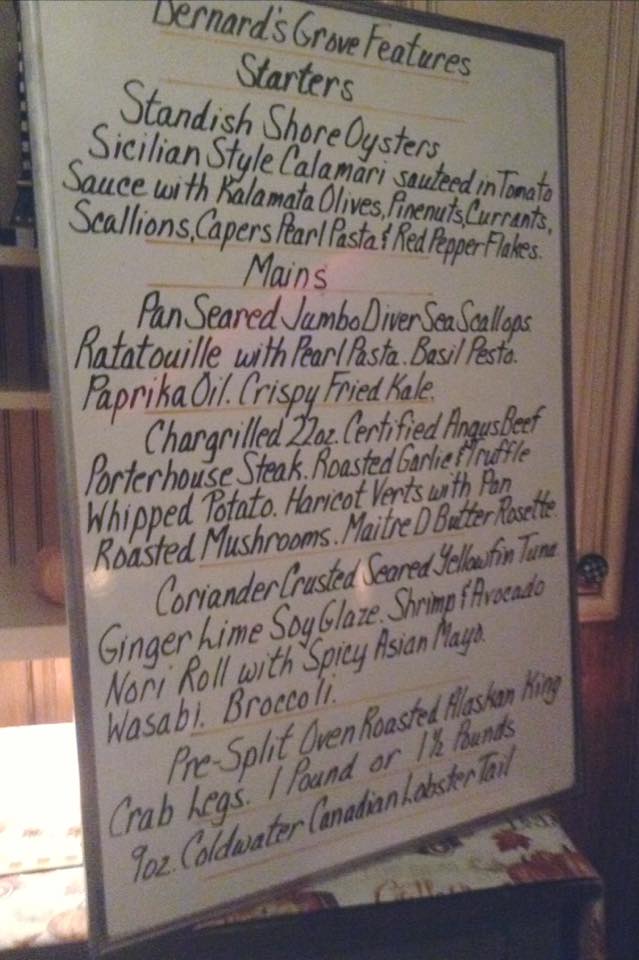 Bernard's Grove Features
Starters
Standish Shore Oysters
Sicilian Style Calamari sauteed in Tomato
Sauce with Kalamata Olives, Pinenuts, Currants,
Scallions, Capers Pearl Pasta & Red Pepper Flakes.
Mains
Pan Seared Jumbo Diver Sea Scallops
Ratatouille with Pearl Pasta. Basil Pesto.
Paprika Oil. Crispy Fried Kale.
Chargrilled 22oz. Certified Angus Beef
Porterhouse Steak. Roasted Garlic & Truffle
Whipped Potato. Haricot Verts with Pan
Roasted Mushrooms. Maitre D Butter Rosette
Coriander Crusted Seared Yellowfin Tuna
Ginger Lime Soy Glaze. Shrimp & Avocado
Nori Roll with Spicy Asian Mayo.
Wasabi. Broccoli.
Pre-Split Oven Roasted Alaskan King
Crab Legs. 1 Pound or 1½ Pounds
9oz. Coldwater Canadian Lobster Tail